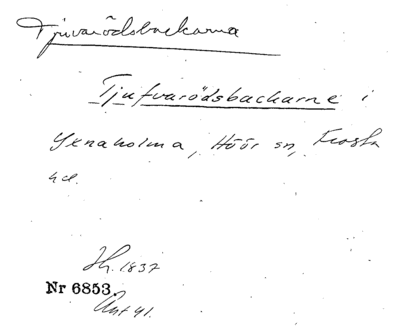 Tjuvarödsbackarna
Tjufvarödsbackarne i
Yxnaholma, Höör sn, Frosta
hd.
Jh. 1837
Nr 6853.
Ant 41.